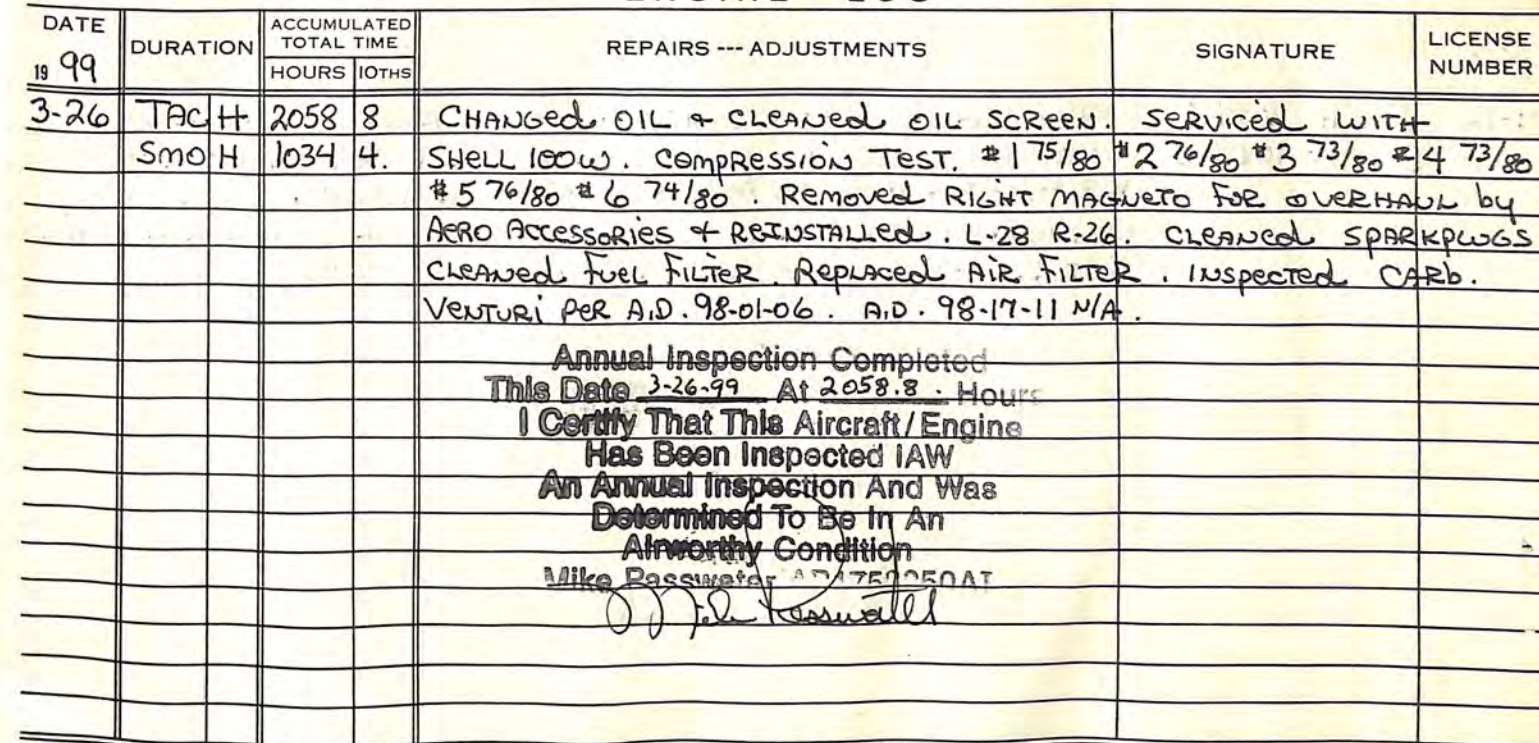 DATE
19 99
DURATION
ACCUMULATED
TOTAL TIME
HOURS 10THS
REPAIRS --- ADJUSTMENTS
SIGNATURE
LICENSE
NUMBER
3-26 TAC H 2058 8 CHANGed OIL & CLEANed OIL SCREEN. SERVICed WITH
SMO H 1034 4. SHELL 100W. COMPRESSION TEST. #1 75/80 #2 76/80 #3 73/80 #4 73/80
#5 76/80 #6 74/80. Removed RIGHT MAGNETO FOR OVERHAUL by
AERO ACCESSORIES & REINSTALLed. L-28 R-26. CLEANed SPARKPLUGS
CLEANed FUEL FILTER. REPLACed AIR FILTER. INSPECTed CARb.
VENTURi PER A.D. 98-01-06. A.D. 98-17-11 N/A.
Annual Inspection Completed
This Date 3-26-99 At 2058.8. Hours
I Certify That This Aircraft/Engine
Has Been Inspected IAW
An Annual Inspection And Was
Determined To Be In An
Airworthy Condition
Mike Passwater